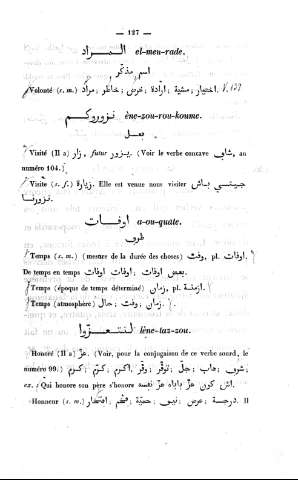 — 127 —
المراد el-meu-rade.
اسم مذكر
Volonté (s. m.) اختيار ; مشية ; ارادة ; غرض ; خاطر ; مراد. V. 127
نزوروكم ène-zou-rou-koume.
فعل
Visité (Il a) زار, futur يزور. (Voir le verbe concave شاف, au
numéro 104.)
Visite (s. f.) زيارة. Elle est venue nous visiter جيتي باش
تزورنا.
اوقات a-ou-quate.
ظرف
Temps (s. m.) (mesure de la durée des choses) وقت, pl. اوقات.
De temps en temps بعض اوقات ; اوقات اوقات.
Temps (époque de temps déterminé) زمان, pl. ازمنة.
Temps (atmosphère) حال ; وقت ; زمان.
لنتعزوا lène-taz-zou.
Honoré (Il a) عز. (Voir, pour la conjugaison de ce verbe sourd, le
numéro 99.) كرم ; اكرم ; وقر ; توقر ; جل ; هاب ; شرف ;
ex. : Qui honore son père s'honore اش كون عز باباه عز نفسه.
Honneur (s. m.) افتخار ; حمية ; نيف ; عرض ; درجة. Il